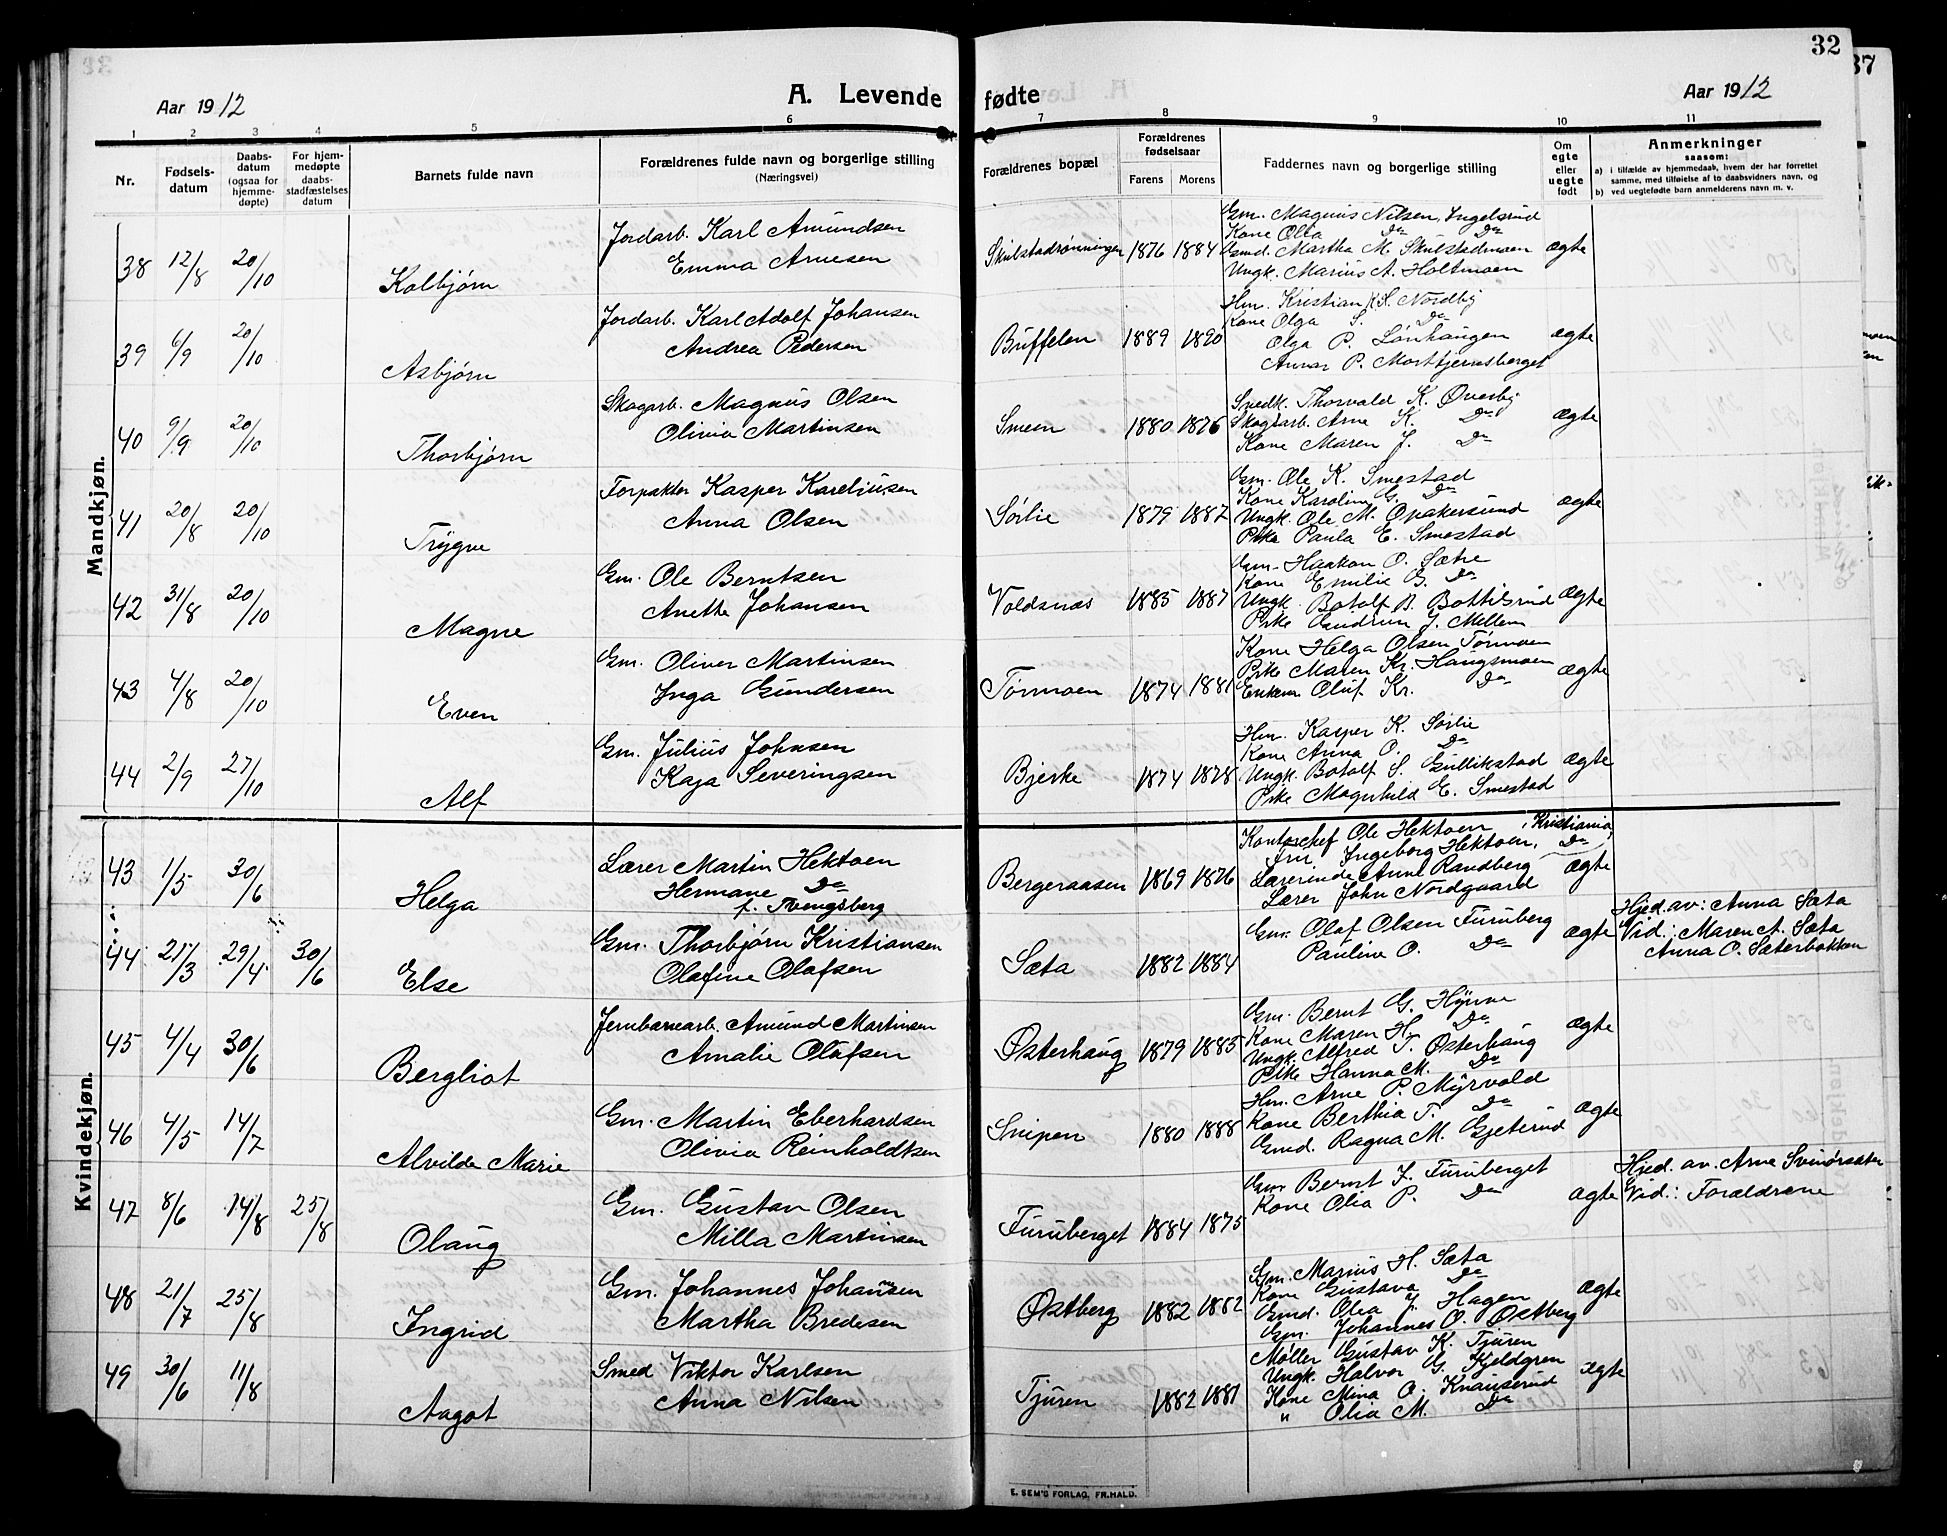 32
37
Aar 1912
A. Levende
fødte
Aar 1912
1 2 3 4 5 6 7 8 9 10 11
Nr.
Fødsels-
datum
Daabs-
datum
(ogsaa for
hjemme-
døpte)
For hjem-
medøpte
daabs-
stadfæstelses
datum
Barnets fulde navn
Forældrenes fulde navn og borgerlige stilling
(Næringsvei)
Forældrenes bopæl
Forældrenes
fødselsaar
Farens Morens
Faddernes navn og borgerlige stilling
Om
egte
eller
uegte
født
Anmerkninger
saasom:
a) i tilfælde av hjemmedaab, hvem der har forrettet
samme, med tilføielse af to daabsvidners navn, og
b) ved uegtefødte barn anmelderens navn m. v.
Mandkjøn.
38 12/8 20/10 Kolbjørn
Jordarb. Karl Amundsen
Emma Arnesen
Skulstadrønningen 1876 1884
Gm. Magnus Nilsen, Ingelsrud
Kone Olea Do Do
Gmd. Martha M. Skulstadmoen
Ungk. Marius A. Holtmoen
ægte
39 6/9 20/10 Asbjørn
Jordarb. Karl Adolf Johansen
Andrea Pedersen
Buffelen 1889 1890
Hm. Kristian K. S. Nordby
Kone Olga S. Do
Olga P. Lønhaugen
Annar P. Morttjernsberget
ægte
40 9/9 20/10 Thorbjørn
Skogarb. Magnus Olsen
Olivia Martinsen
Smeen 1880 1876
Snedk. Thorvald K. Øverby
Skogsarb. Arne K. Do
Kone Maren J. Do
ægte
41 20/8 20/10 Trygve
Forpakter Kasper Kareliusen
Anna Olsen
Sørlie 1879 1887
Gm. Ole K. Smestad
Kone Karoline G. Do
Ungk. Ole M. Opakersund
Pike Paula E. Smestad
ægte
42 31/8 20/10 Magne
Gm. Ole Berntsen
Anette Johansen
Voldsnæs 1885 1887
Gm. Haakon O. Sætre
Kone Emilie G. Do
Ungk. Botolf B. Bottilsrud
Pike Gudrun J. Mellem
ægte
43 4/8 20/10 Even
Gm. Oliver Martinsen
Inga Gundersen
Tørmoen 1874 1881
Kone Helga Olsen Tørmoen
Pike Maren Kr. Haugsmoen
Enkem. Oluf Kr. Do
ægte
44 2/9 27/10 Alf
Gm. Julius Johnsen
Kaja Severingsen
Bjerke 1874 1878
Hm. Kasper K. Sørlie
Kone Anna O. Do
Ungk. Botolf S. Gullikstad
Pike Magnhild E. Smestad
ægte
Kvindekjøn.
43 1/5 30/6 Helga
Lærer Martin Hektoen
Hermane Do
f. Svengsberg
Bergeraasen 1869 1876
Kontorchef Ole Hektoen, Kristiania,
Fru Ingeborg Hektoen, Do
Lærerinde Anne Randberg
Lærer John Nordgaard
ægte
44 21/3 29/4 30/6 Else
Gm. Thorbjørn Kristiansen
Olafine Olafsen
Sæta 1882 1884
Gm. Olaf Olsen Furuberg
Pauline O. Do
ægte
Hjed. av: Anna Sæta
Vid.: Maren A. Sæta
Anna O. Sæterbakken
45 4/4 30/6 Bergliot
Jernbanearb. Amund Martinsen
Amalie Olafsen
Østerhaug 1879 1885
Gm. Bernt G. Hynne
Kone Maren H. Do
Ungk. Alfred T. Østerhaug
Pike Hanna M. Do
ægte
46 4/5 14/7 Alvilde Marie
Gm. Martin Eberhardsen
Olivia Reinholdtsen
Snipen 1880 1888
Hm. Arne P. Myrvold
Kone Berthia T. Do
Gmd. Ragna M. Gjetsrud
ægte
47 8/6 14/8 25/8 Olaug
Gm. Gustav Olsen
Milla Martinsen
Furuberget 1884 1875
Gm. Bernt J. Furuberget
Kone Olia P. Do
ægte
Hjed. av. Arne Svinørsæter
Vid.: Forældrene
48 21/7 25/8 Ingrid
Gm. Johannes Johansen
Martha Bredesen
Østberg 1882 1882
Gm. Marius H. Sæta
Kone Gustava Do
Gmd. Olea J. Hagen
Gm. Johannes O. Østberg
ægte
49 30/6 11/8 Aagot
Smed Viktor Karlsen
Anna Nilsen
Tjuren 1882 1881
Møller Gustav K. Tjuren
Ungk. Halvor G. Kjeldgren
Kone Mina O. Knauserud
" Olia M. Do
ægte
E. SEM'S FORLAG, FR.HALD.